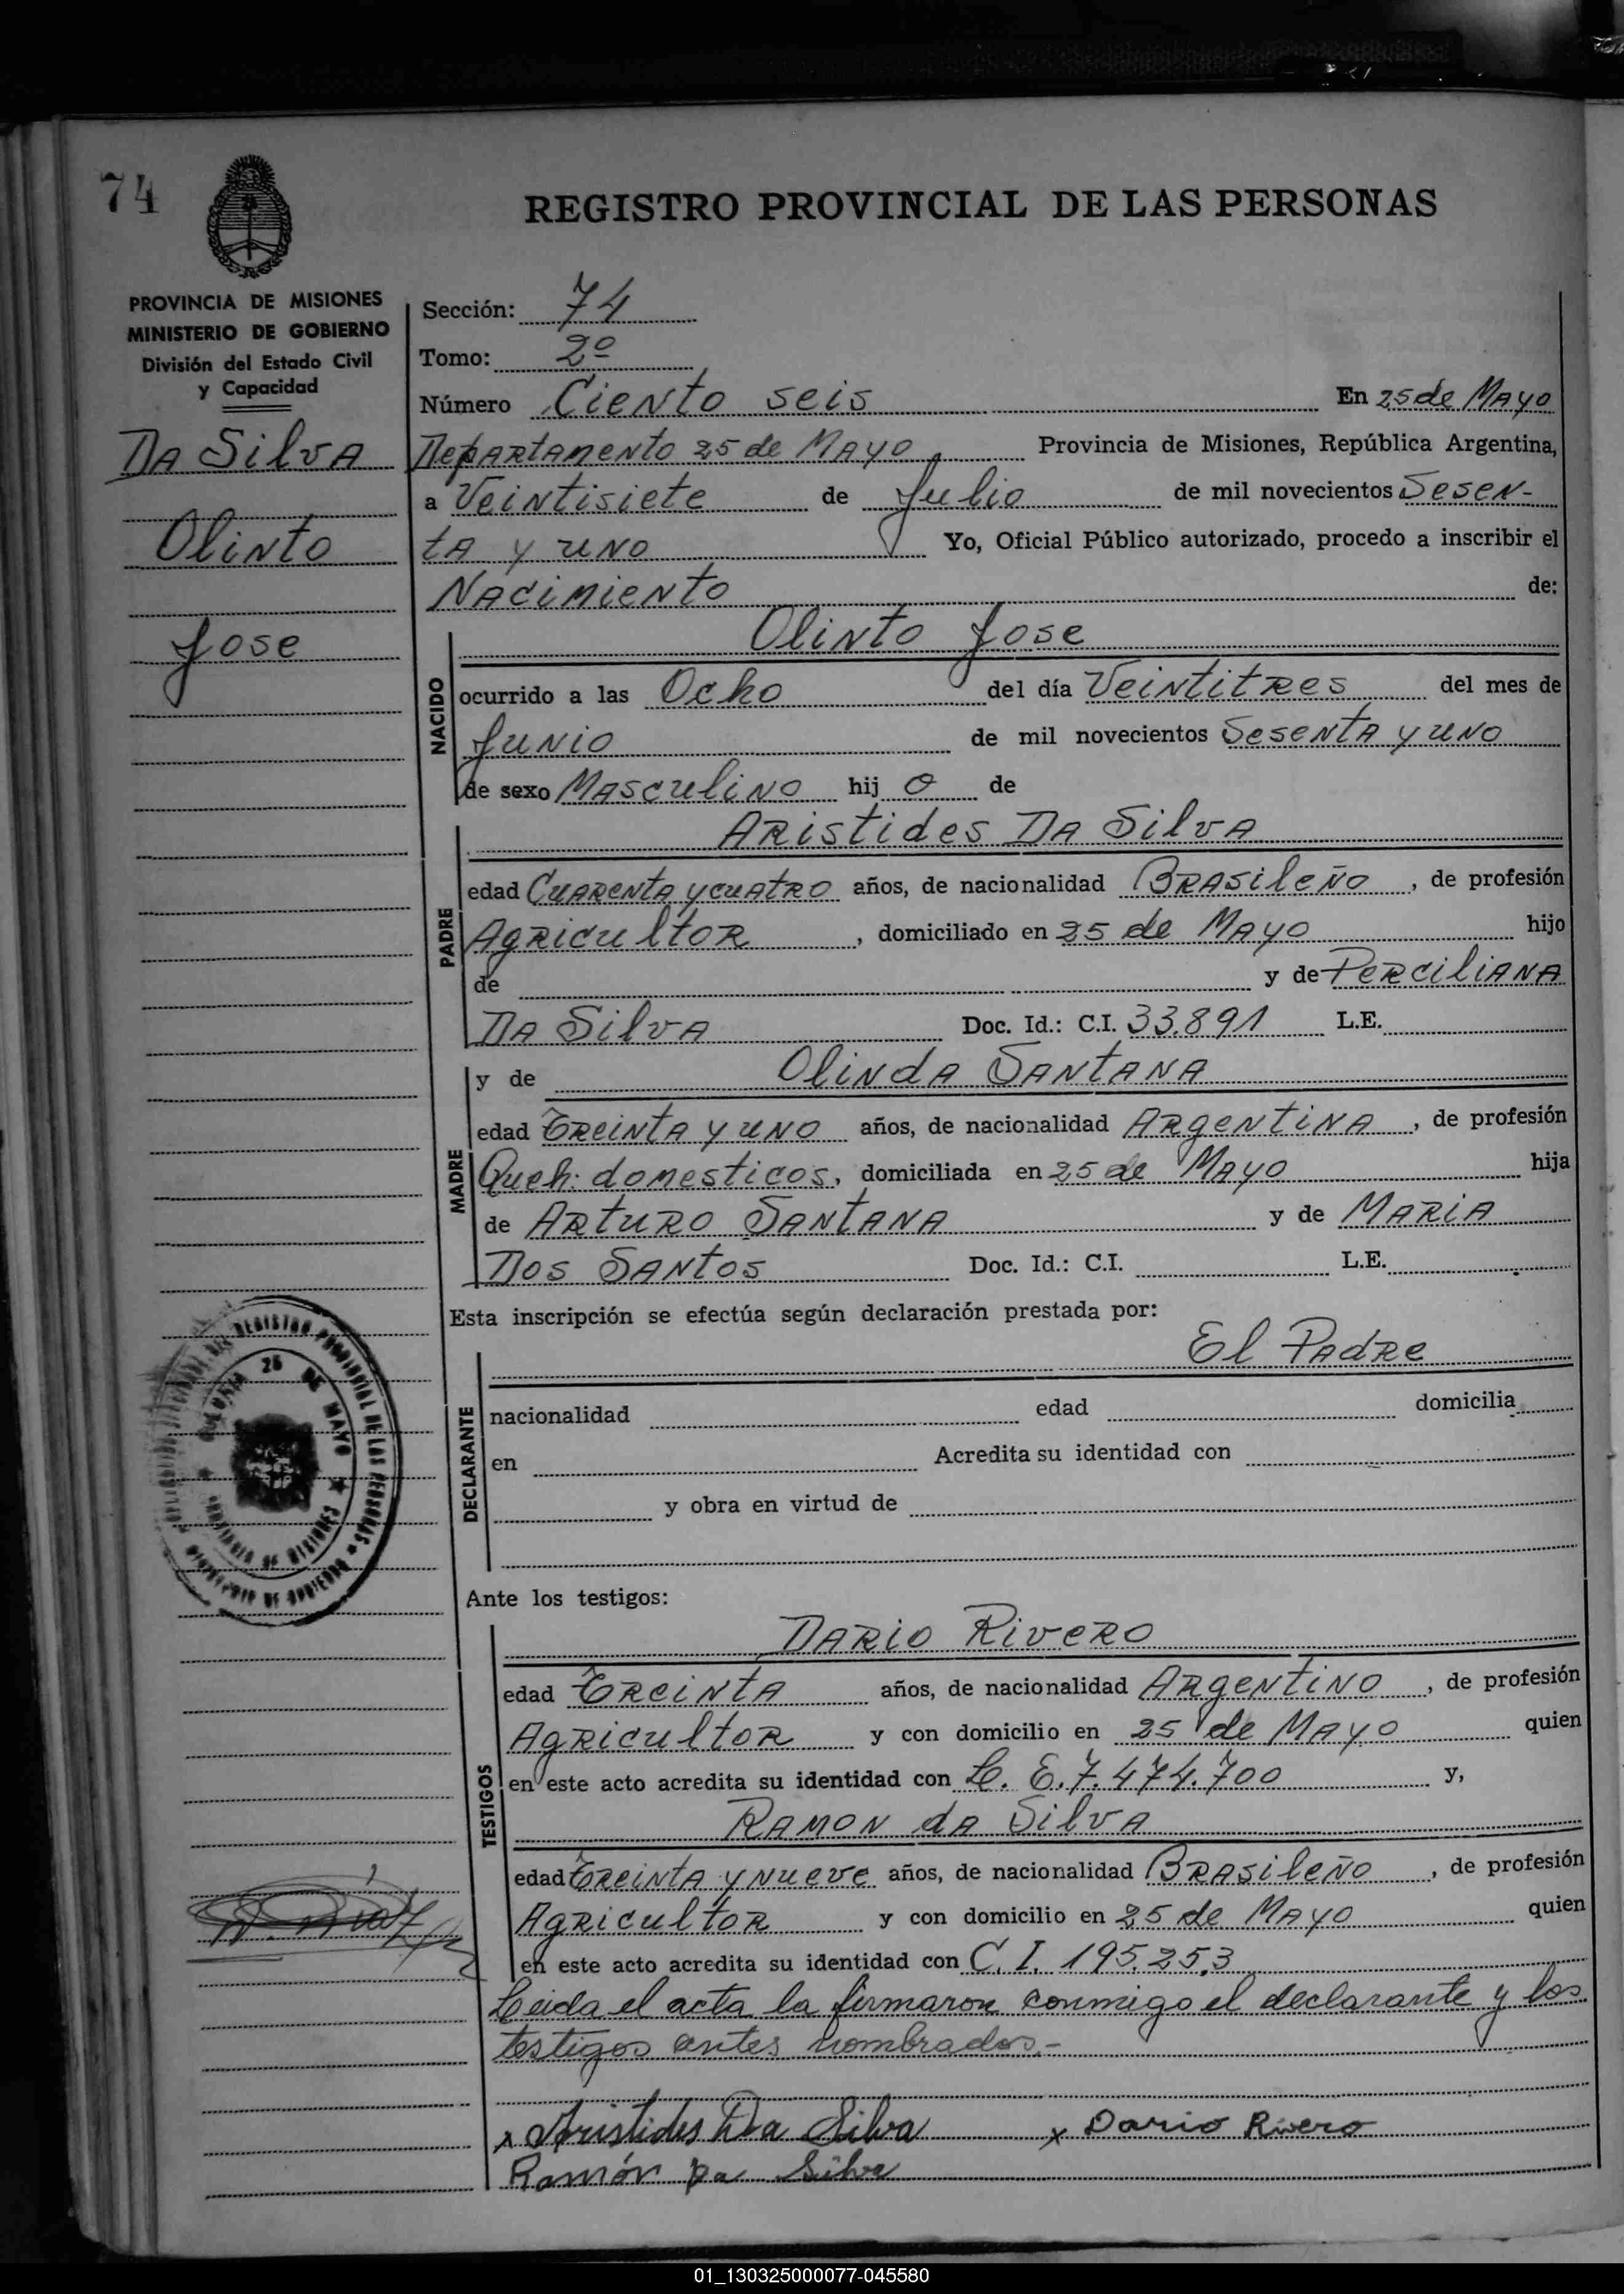 74
REGISTRO PROVINCIAL DE LAS PERSONAS
PROVINCIA DE MISIONES
MINISTERIO DE GOBIERNO
División del Estado Civil
y Capacidad
Da Silva
Olinto
Jose
Sección: 74
Tomo: 2º
Número Ciento seis En 25 de Mayo
Departamento 25 de Mayo Provincia de Misiones, República Argentina,
a Veintisiete de Julio de mil novecientos Sesen-
ta y uno Yo, Oficial Público autorizado, procedo a inscribir el
Nacimiento de:
NACIDO
Olinto Jose
ocurrido a las Ocho del día Veintitres del mes de
Junio de mil novecientos Sesenta y uno
de sexo Masculino hij o de
PADRE
Aristides Da Silva
edad Cuarenta y cuatro años, de nacionalidad Brasileño, de profesión
Agricultor, domiciliado en 25 de Mayo hijo
de y de Perciliana
Da Silva Doc. Id.: C.I. 33.891 L.E.
MADRE
y de Olinda Santana
edad Treinta y uno años, de nacionalidad Argentina, de profesión
Queh: domesticos, domiciliada en 25 de Mayo hija
de Arturo Santana y de Maria
Dos Santos Doc. Id.: C.I. L.E.
Esta inscripción se efectúa según declaración prestada por:
DECLARANTE
El Padre
nacionalidad edad domicilia
en Acredita su identidad con
y obra en virtud de
REGISTRO PROVINCIAL DE LAS PERSONAS
COLONIA 25 DE MAYO
PROVINCIA DE MISIONES
MINISTERIO DE GOBIERNO
Ante los testigos:
TESTIGOS
Dario Rivero
edad Treinta años, de nacionalidad Argentino, de profesión
Agricultor y con domicilio en 25 de Mayo quien
en este acto acredita su identidad con L. E. 7.474.700 y,
Ramon da Silva
edad Treinta y nueve años, de nacionalidad Brasileño, de profesión
Agricultor y con domicilio en 25 de Mayo quien
en este acto acredita su identidad con C. I. 195.253
Leida el acta la firmaron conmigo el declarante y los
testigos antes nombrados.-
x Aristides Da Silva x Dario Rivero
Ramón Da Silva
01_130325000077-045580